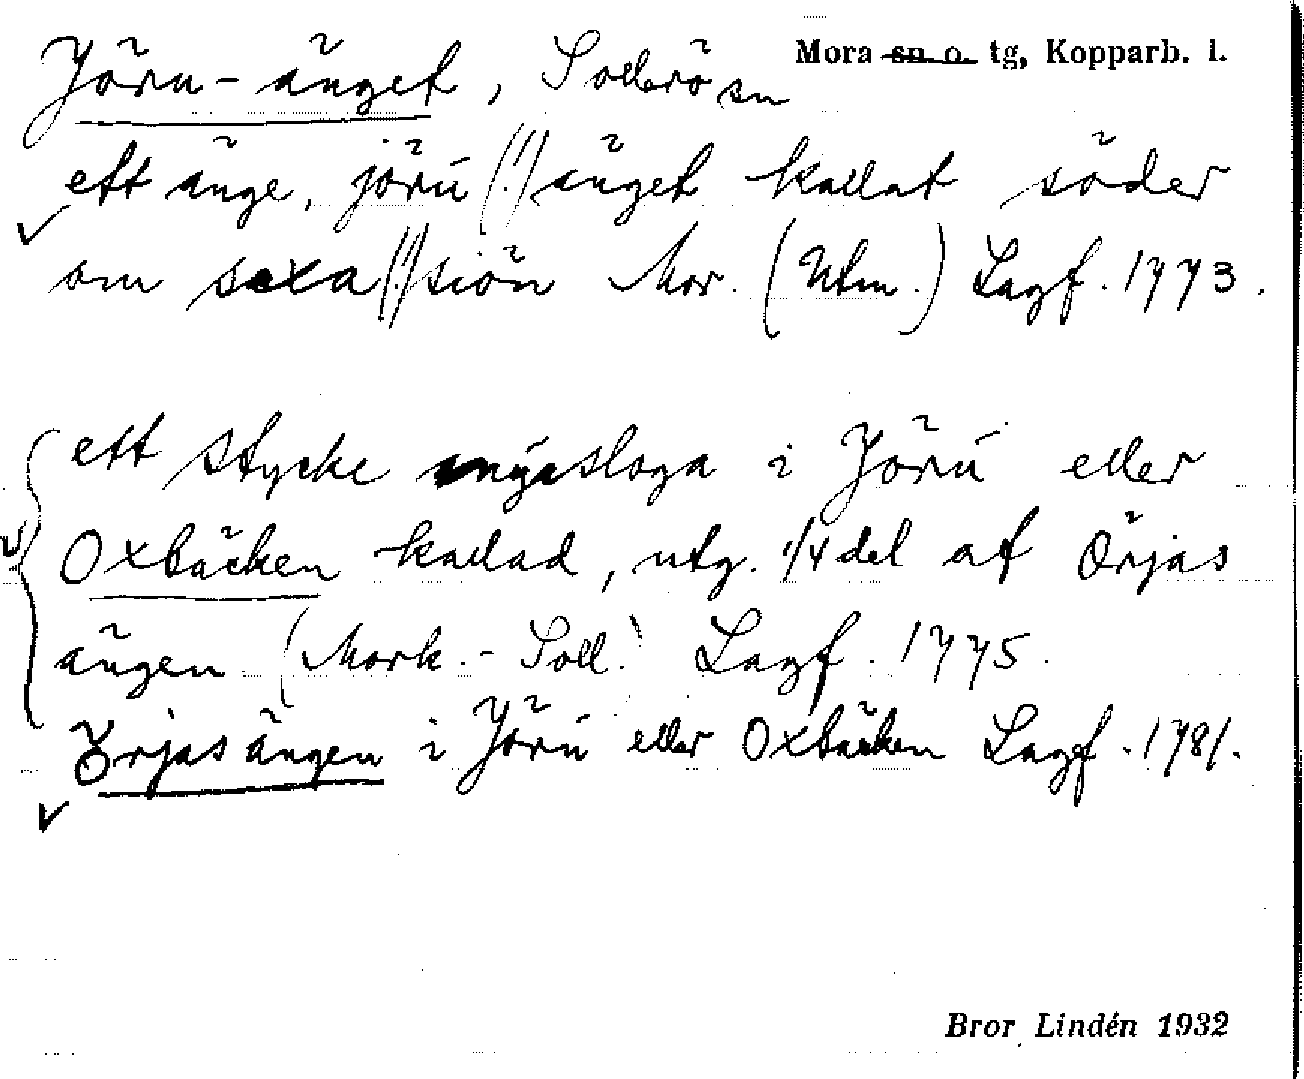 Jöru-änget, Sollerö sn
Mora sn o. tg, Kopparb. l.
ett änge, jöru (!) änget kallat söder
om sexa (!) siön Mor. (Utm.) Lagf. 1773.
ett stycke myrsloga i Jöru eller
Oxbäcken kallad, utg. 1/4 del af Örjas
ängen (Mork.- Soll.) Lagf. 1775.
Örjasängen i Jöru eller Oxbäcken Lagf. 1781.
Bror Lindén 1932